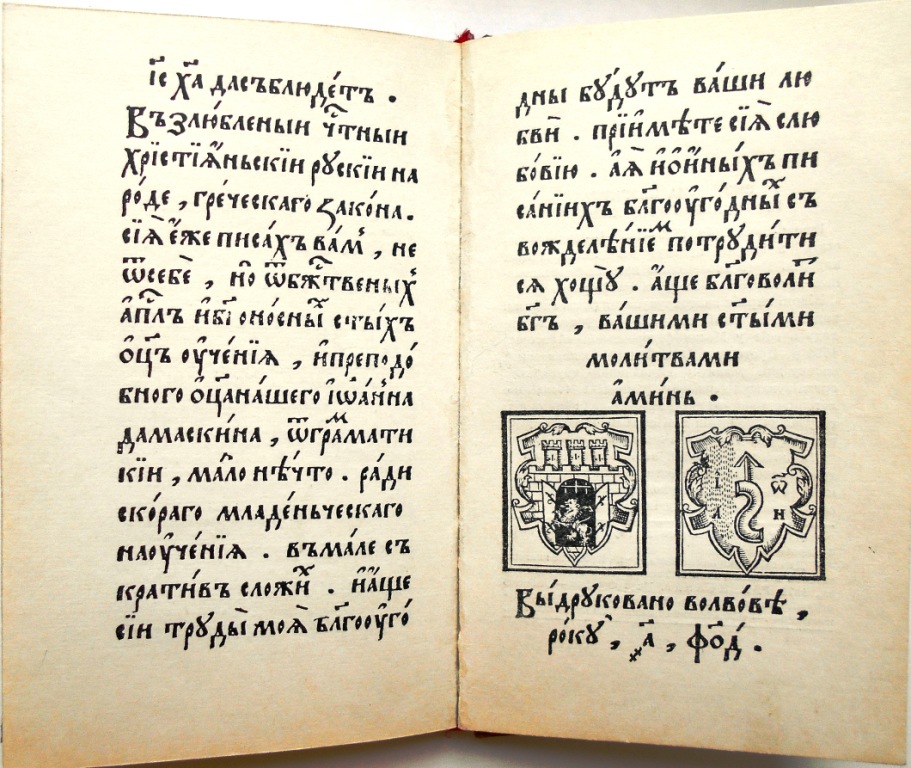 і҃с ха҃ да съблюде́тъ .
Възлю́бленыи чⷭ҇тныи
хрїстїа́ньскїи рускїи на
ро́де , гре́ческаго зако́на .
сїѧ̀ е҆́же писа́хъ ва́мъ , не
ѿ себѐ , но̀ ѿ бж҃твеныⷯ
а҆пⷭ҇лъ и҆ бг҃оно́сныⷯ ст҃ы́хъ
ѻ҆ц҃ъ ᲂу҆че́нїѧ , и҆ преподо́
бного ѻ҆ц҃а на́шего і҆ѡа́нна
дамаски́на , ѿ гра́ⷨмати
кїи , ма́ло нѣ́что . ра́ди
ско́раго младе́ньческаго
наᲂуче́нїѧ . въ ма́ле съ
крати́въ сложи́ⷯ . и҆ а҆́ще
сїи труды̀ моѧ̀ бл҃гоᲂуго́
дны бꙋ́дꙋтъ ва́ши лю
бвѝ . прїи҆мѣ́те сїѧ̀ слю
бо́вїю . а҆́ѧ҆ и҆ ѻ҆и҆ны́хъ пи
са́нїихъ бл҃гоᲂуго́дныⷯ съ
вожделѣ́нїеⷨ потрꙋди́ти
сѧ хощꙋ̀ . а҆́ще бл҃говоли́
бг҃ъ , ва́шими ст҃ы́ми
моли́твами
а҆ми́нь .
і ѿ
л н
Вы́дрꙋковано во лво́вѣ ,
ро́кꙋ , ҂а҃ , фо҃д .